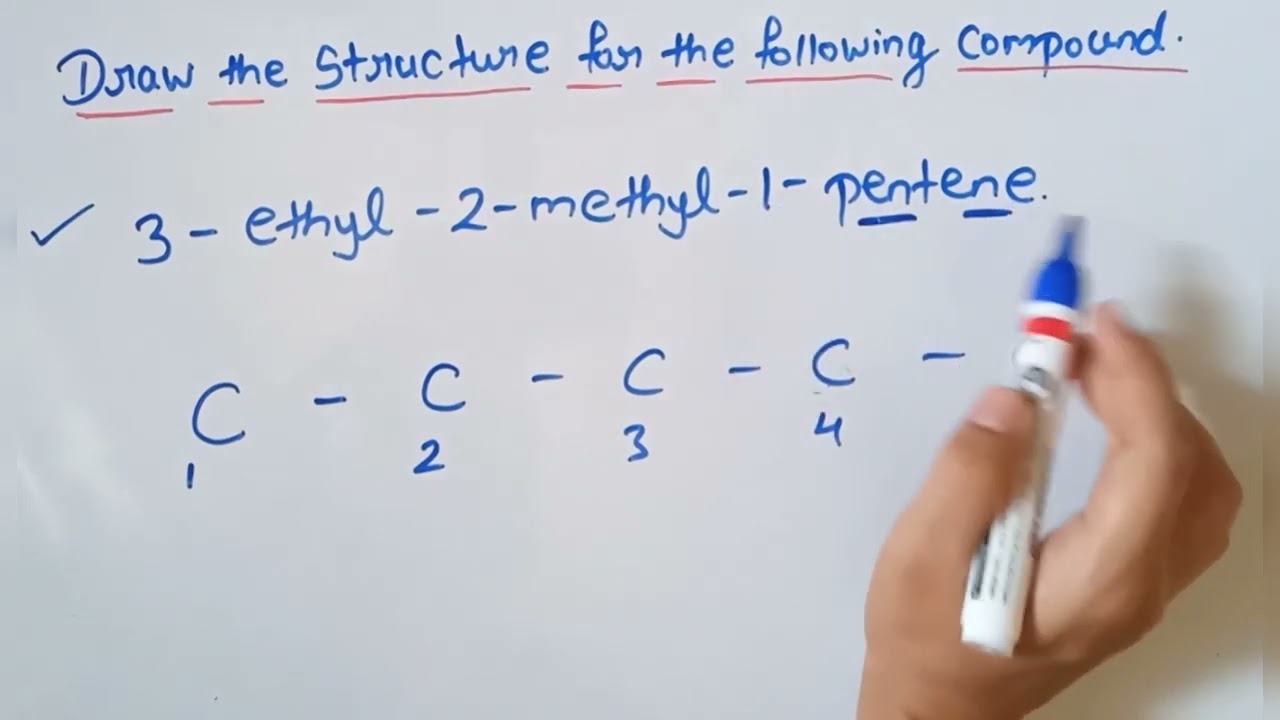 Draw the Structure for the following Compound.
✓ 3-ethyl-2-methyl-1-pentene.
C - C - C - C -
1 2 3 4